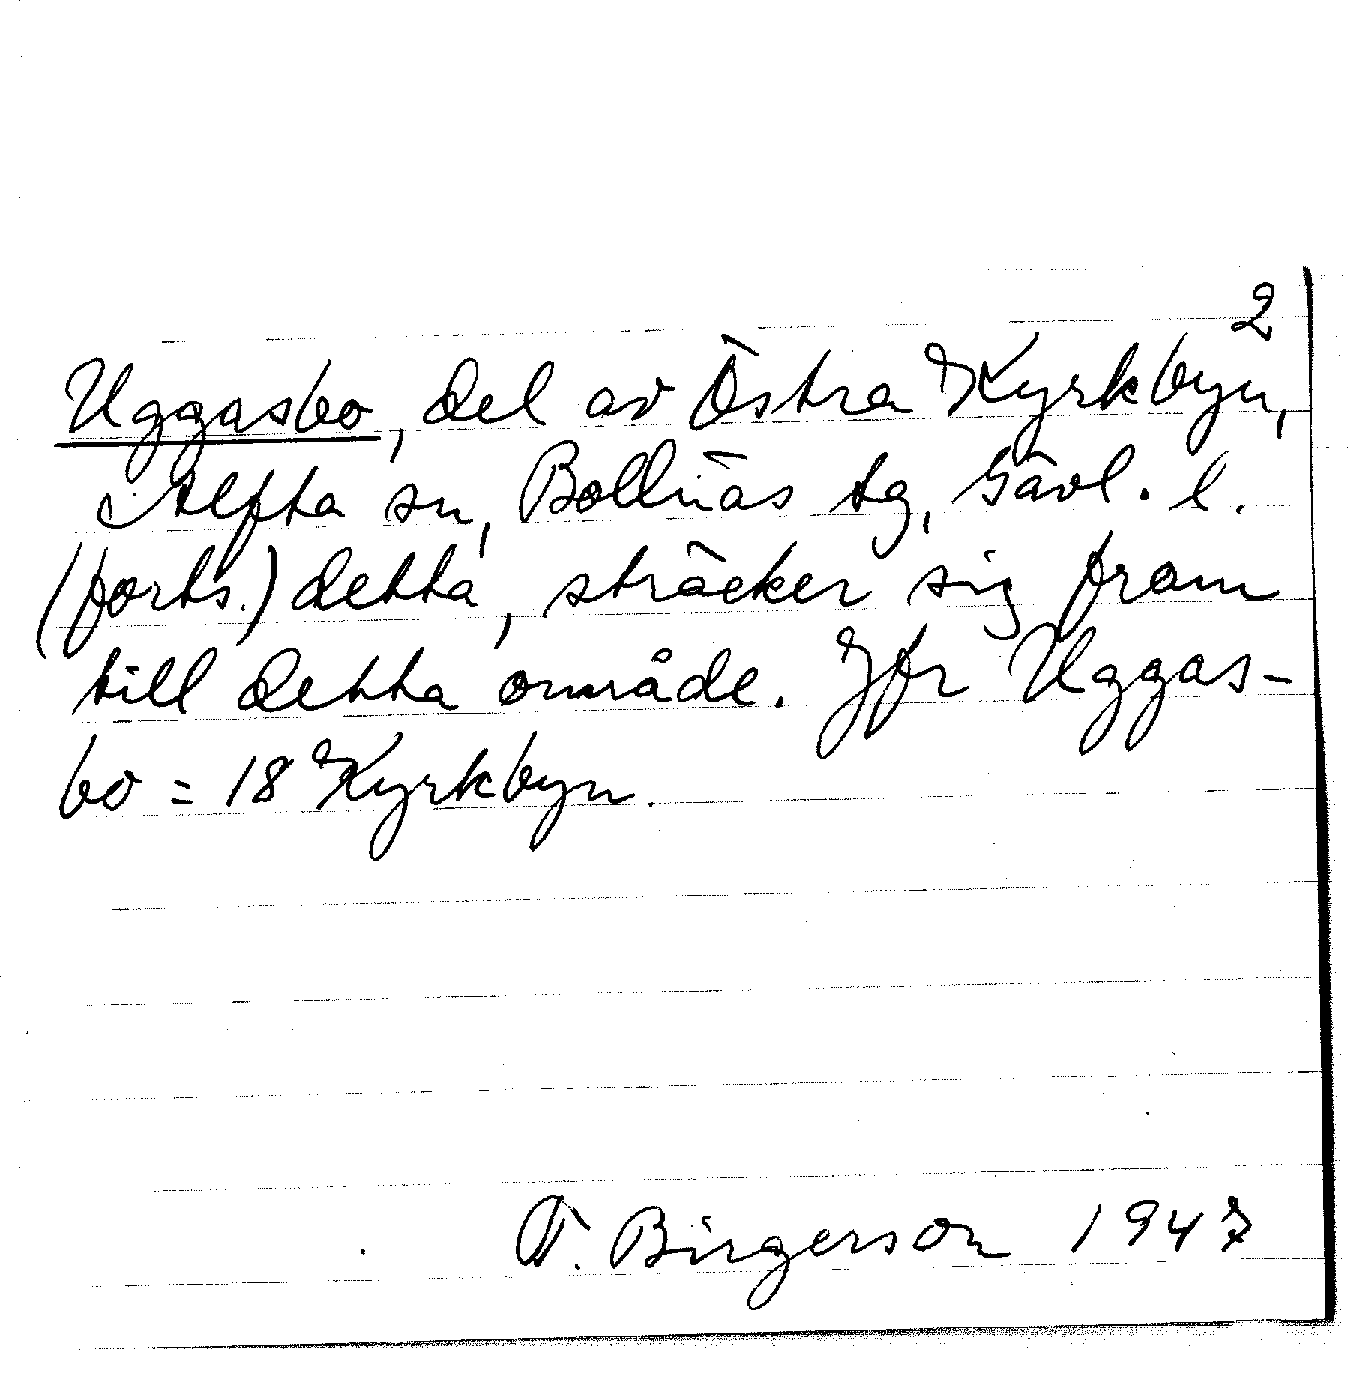 2
Uggasbo, del av Östra Kyrkbyn,
Alfta sn, Bollnäs tg, Gävl. l.
(forts.) detta, sträcker sig fram
till detta område. Jfr Uggas-
bo = 18 Kyrkbyn.
T. Birgerson 1947